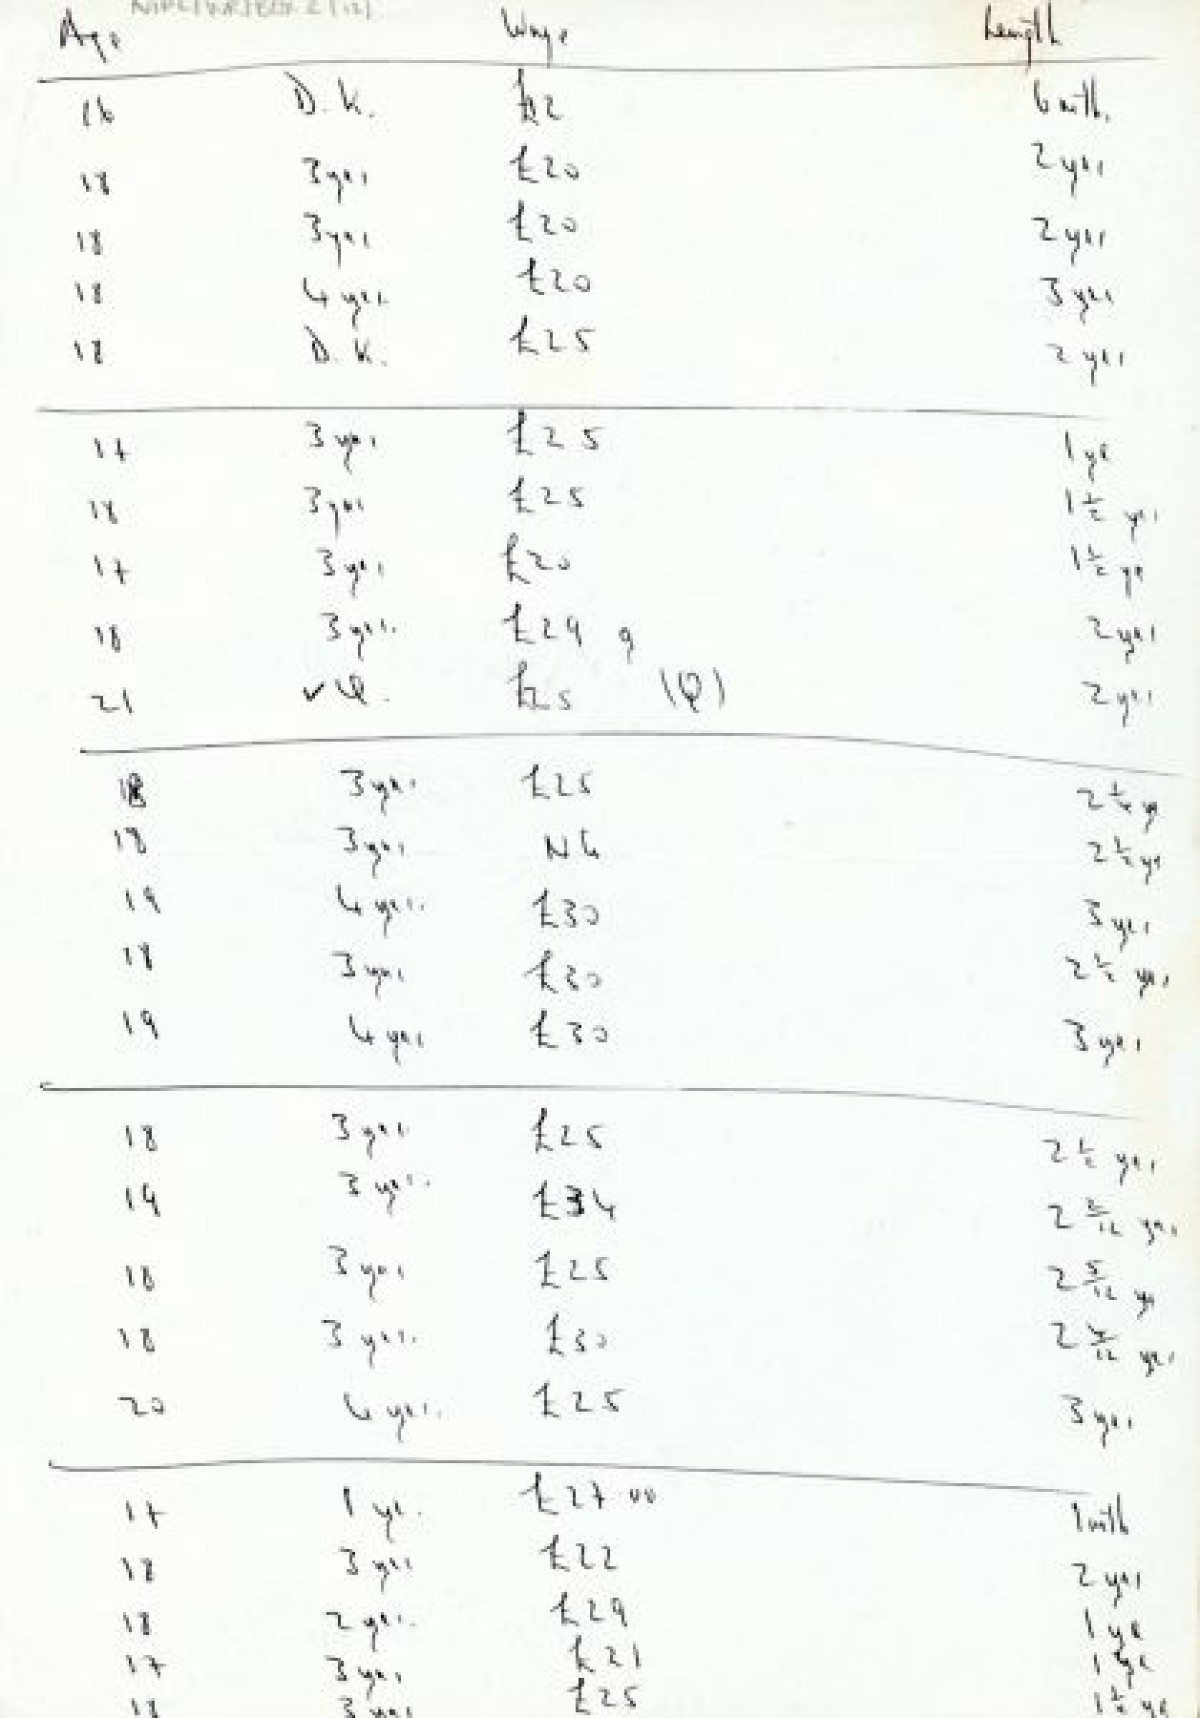 Age Wage Length
16 D.K. 6 mth.
18 3 yrs £20 2 yrs
18 3 yrs £20 2 yrs
18 4 yrs. £20 3 yrs
18 D.K. £25 2 yrs
17 3 yrs £25 1 yr
18 3 yrs £25 1 1/2 yrs
17 3 yrs £20 1 1/2 yr
18 3 yrs. £29 9 2 yrs
21 £25 (Q) 2 yrs
18 3 yrs £25 yr
18 3 yrs NK 2 1/2 yr
19 4 yrs. £30 3 yrs
18 3 yrs £30 2 1/2 yrs
19 4 yrs £30 3 yrs
18 3 yrs £25 2 1/2 yrs
19 3 yrs. £34 yrs
18 3 yrs £25 2 5/12 yr
18 3 yrs. £30 yrs
20 4 yrs. £25 3 yrs
17 1 yr. £27.00 1 mth
18 3 yrs £22 2 yrs
18 2 yrs. £29 1 yr
17 3 yrs £21 1 yr
18 3 yrs £25 1 1/2 yr